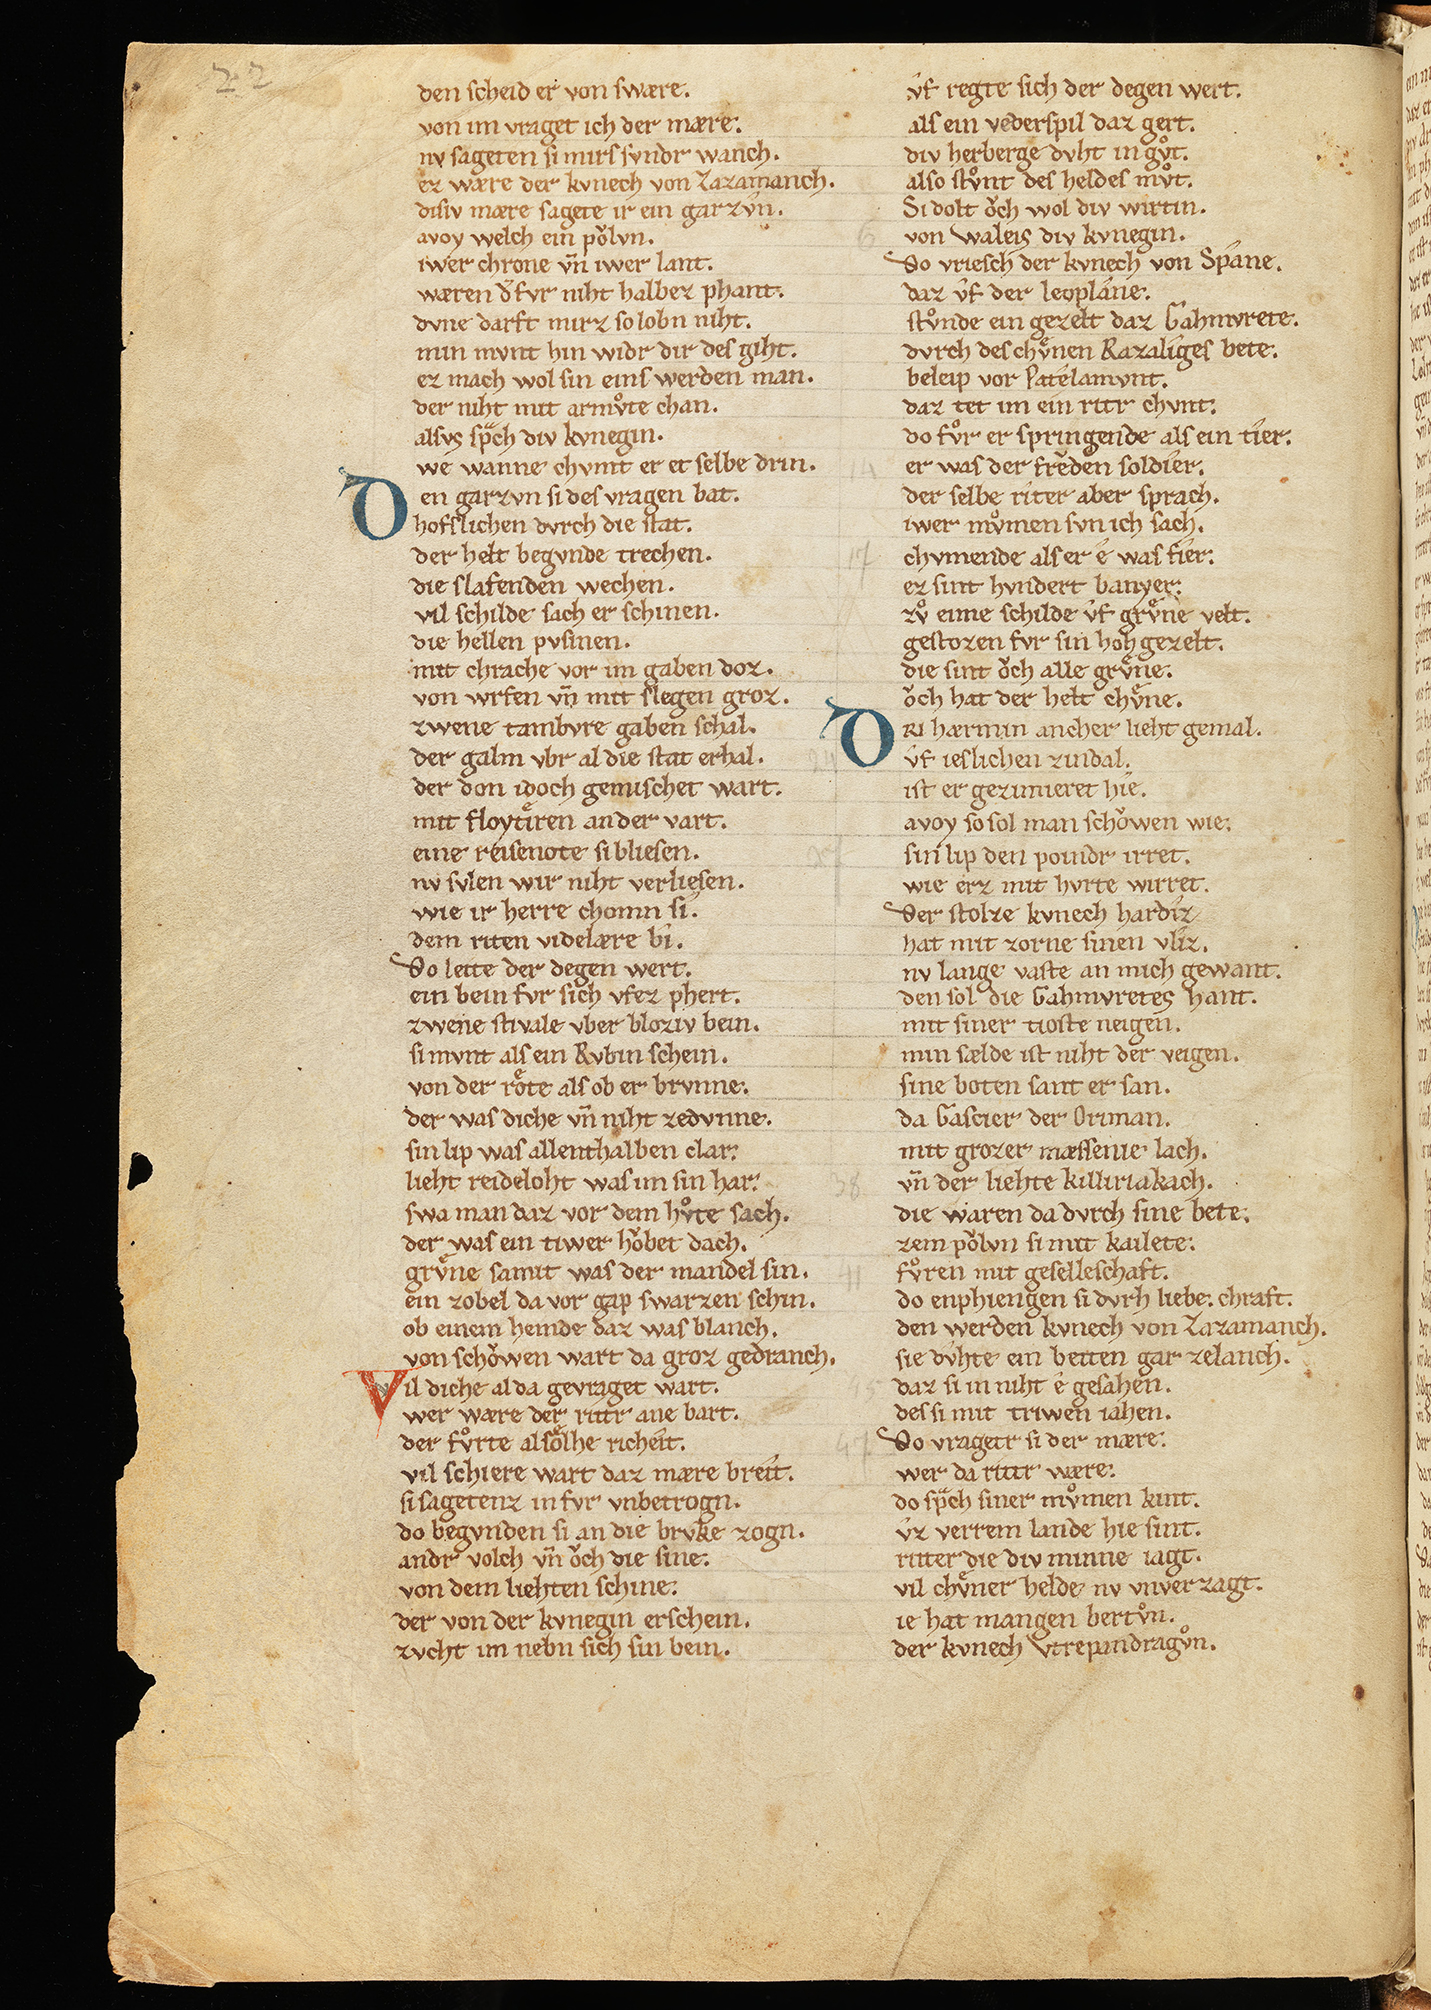 22
den scheid er von swære.
von im vraget ich der mære.
nv sageten si mirs svndr wanch.
ez wære der kvnech von Zazamanch.
disiv mære sagete ir ein garzvn.
avoy welch ein pǒlvn.
iwer chrone vn̄ iwer lant.
wæren d̾fvr niht halbez phant.
dvne darft mirz so lobn niht.
min mvnt hin widr dir des giht.
ez mach wol sin eins werden man.
der niht mit armv̊te chan.
alsvs sp̾ch div kvnegin.
we wanne chvmt er et selbe drin.
Den garzvn si des vragen bat.
hofslichen dvrch die stat.
der helt begvnde trechen.
die slafenden wechen.
vil schilde sach er schinen.
die hellen pvsinen.
mit chrache vor im gaben doz.
von wrfen vn̄ mit slegen groz.
zwene tambvre gaben schal.
der galm vbr al die stat erhal.
der don idoch gemischet wart.
mit floytîren an der vart.
eine reisenote si bliesen.
nv svlen wir niht verliesen.
wie ir herre chomn si.
dem riten videlære bi.
Do leite der degen wert.
ein bein fvr sich vfez phert.
zwene stivale vber bloziv bein.
si mvnt als ein Rvbin schein.
von der rôte als ob er brvnne.
der was diche vn̄ niht zedvnne.
sin lip was allenthalben clar.
lieht reideloht was im sin har.
swa man daz vor dem hv̊te sach.
der was ein tiwer hǒbet dach.
grv̊ne samit was der mandel sin.
ein zobel da vor gap swarzen schin.
ob einem hemde daz was blanch.
von schǒwen wart da groz gedranch.
Vil diche al da gevraget wart.
wer wære der rittr ane bart.
der fv̊rte alsölhe richeit.
vil schiere wart daz mære breit.
si sagetenz in fvr vnbetrogn.
do begvnden si an die brvke zogn.
andr volch vn̄ ǒch die sine.
von dem liehten schine.
der von der kvnegin erschein.
zvcht im nebn sich sin bein.
v̂f regte sich der degen wert.
als ein vederspil daz gert.
div herberge dvht in gv̊t.
also stv̊nt des heldes mv̊t.
Si dolt ǒch wol div wirtin.
6
von waleis div kvnegin.
Do vriesch der kvnech von Spane.
daz v̂f der leoplane.
stv̊nde ein gezelt daz Gahmvrete.
dvrch des chv̊nen Razaliges bete.
beleip vor Patelamvnt.
daz tet im ein ritr chvnt.
do fv̊r er springende als ein tier.
14
er was der frěden soldier.
der selbe riter aber sprach.
iwer mv̊men svn ich sach.
17
chvmende als er ê was fier.
ez sint hvndert banyer.
zv̊ eime schilde v̂f grv̊ne velt.
gestozen fvr sin hoh gezelt.
die sint ǒch alle grv̊ne.
ǒch hat der helt chv̊ne.
24
DRI hærmin ancher lieht gemal.
v̂f ieslichen zindal.
ist er gezimieret hie.
avoy so sol man schǒwen wie.
27
sin lip den poindr irret.
wie erz mit hvrte wirret.
Der stolze kvnech hardiz
hat mit zorne sinen vliz.
nv lange vaste an mich gewant.
den sol die Gahmvretes hant.
mit siner tioste neigen.
min sælde ist niht der veigen.
sine boten sant er san.
da Gascier der Oriman.
mit grozer mæssenie lach.
38
vn̄ der liehte killiriakach.
die waren da dvrch sine bete.
zem pǒlvn si mit kailete.
41
fv̊ren mit geselleschaft.
do enphiengen si dvrh liebe. chraft.
den werden kvnech von Zazamanch.
sie dv̂hte ein beiten gar zelanch.
45
daz si in niht ê gesahen.
des si mit triwen iahen.
47
Do vragetr si der mære.
wer da rittr wære.
do sp̾ch siner mv̊men kint.
v̂z verrem lande hie sint.
ritter die div minne iagt.
vil chv̊ner helde nv vnver zagt.
ie hat mangen bertv̊n.
der kvnech vtrepandragv̊n.